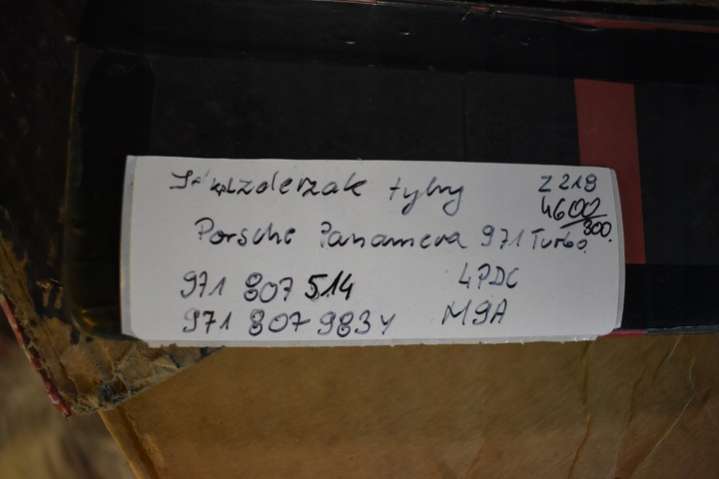 kpl zderzak tylny Z219
4600
Porsche Panamera 971 Turbo 300.
971 807 514 4PDC
971 807 983Y M9A